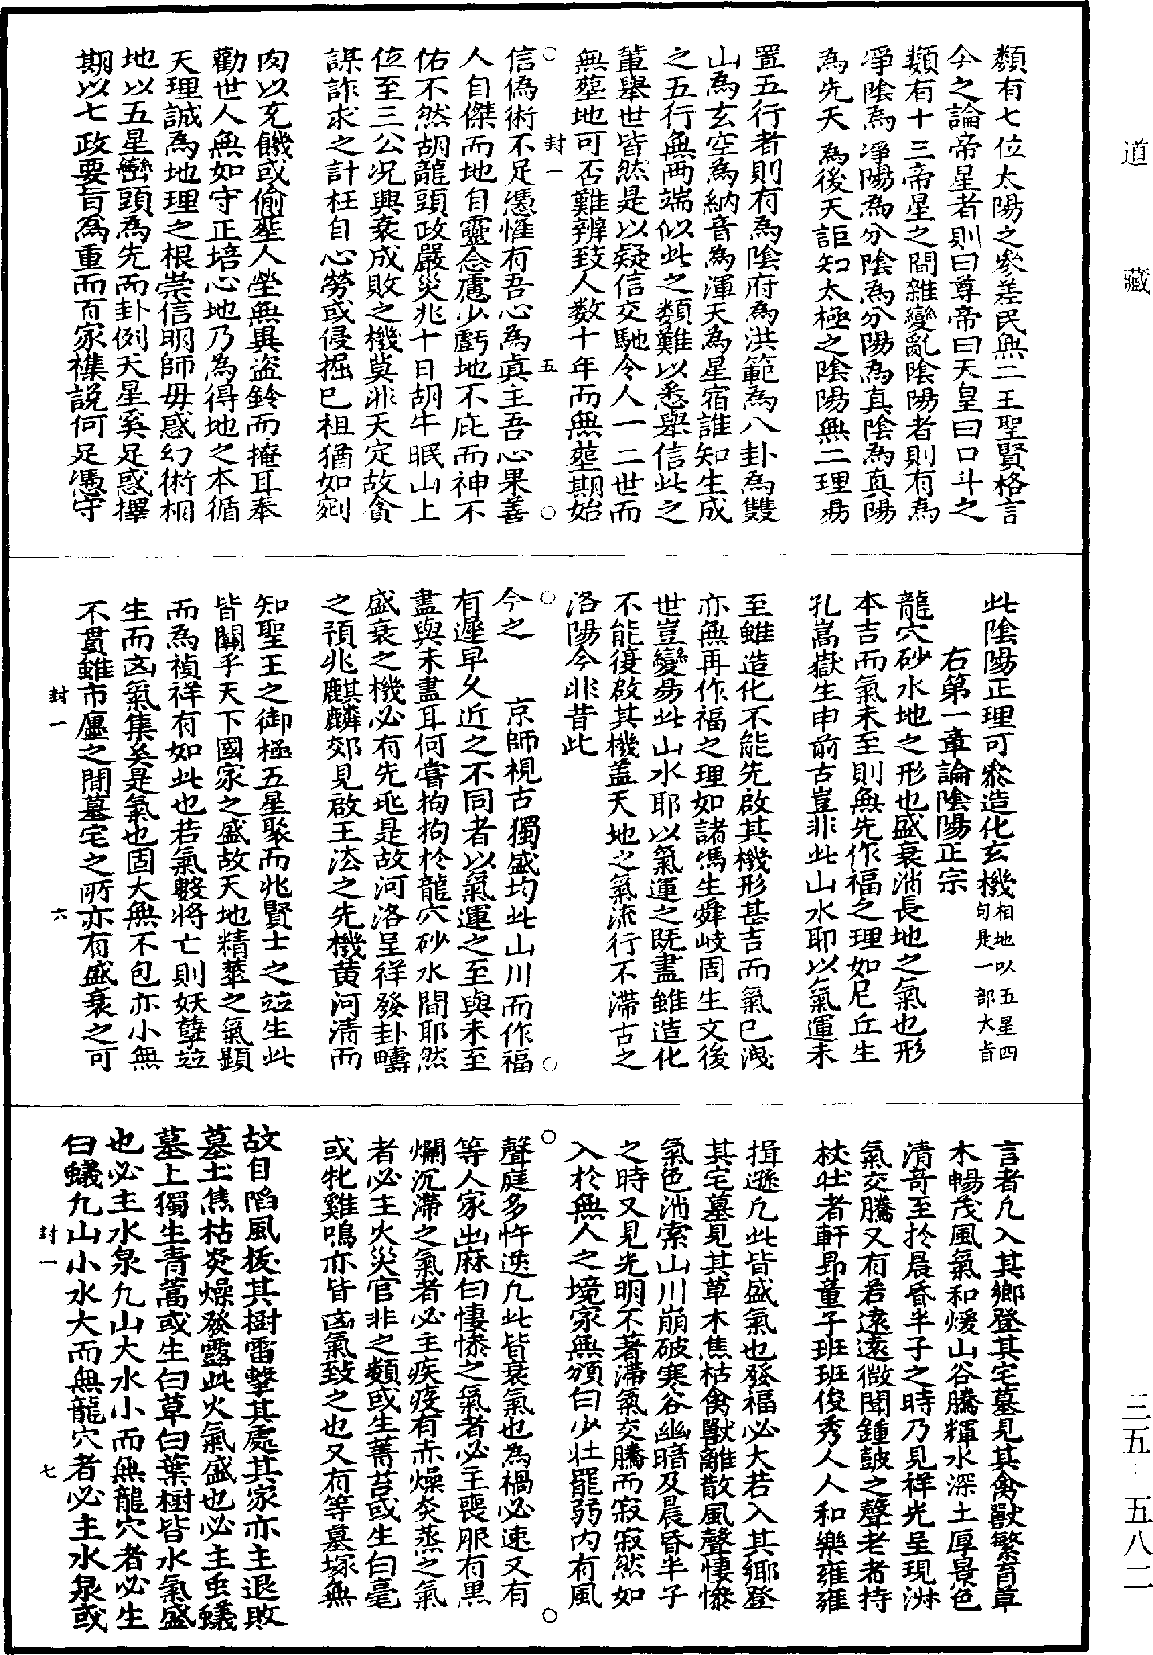 道藏
三五·五八二
類有七位太陽之叅差民無二王聖賢格言
今之論帝星者則曰尊帝曰天皇曰口斗之
類有十三帝星之間雜變亂陰陽者則有為
淨陰為淨陽為分陰為分陽為真陰為真陽
為先天為後天詎知太極之陰陽無二理昜
置五行者則有為陰府為洪範為八卦為雙
山為玄空為納音為渾天為星宿誰知生成
之五行無两端似此之類難以悉舉信此之
輩舉世皆然是以疑信交馳令人一二世而
無塟地可否難辨致人数十年而無塟期始
○封一 五○
信偽術不足憑惟有吾心為真主吾心果善
人自傑而地自靈念慮少虧地不庇而神不
佑不然胡龍頭政嚴災兆十日胡牛眠山上
位至三公况興衰成敗之機莫非天定故貪
謀詐求之計枉自心勞或侵掘已祖猶如剜
肉以充饑或偷塟人塋無異盗鈴而掩耳奉
勸世人無如守正培心地乃為得地之本循
天理誠為地理之根崇信明師毋惑幻術相
地以五星巒頭為先而卦例天星奚足惑擇
期以七政要旨為重而百家襍説何足憑守
此陰陽正理可叅造化玄機相地以五星四句是一部大旨
右第一章論陰陽正宗
龍穴砂水地之形也盛衰消長地之氣也形
本吉而氣未至則無先作福之理如尼丘生
孔嵩嶽生申前古豈非此山水耶以氣運未
至雖造化不能先啟其機形甚吉而氣已洩
亦無再作福之理如諸馮生舜岐周生文後
世豈變昜此山水耶以氣運之既盡雖造化
不能復啟其機盖天地之氣流行不滯古之
洛陽今非昔此
○○
今之 京師視古獨盛均此山川而作福
有遲早久近之不同者以氣運之至與未至
盡與未盡耳何嘗拘拘於龍穴砂水間耶然
盛衰之機必有先兆是故河洛呈祥發卦疇
之預兆麒麟郊見啟王法之先機黄河清而
知聖王之御極五星聚而兆賢士之竝生此
皆關乎天下國家之盛故天地精華之氣顯
而為禎祥有如此也若氣數將亡則妖孽竝
生而凶氣集矣是氣也固大無不包亦小無
不貫雖市廛之間墓宅之所亦有盛衰之可
封一 六
言者凡入其鄉登其宅墓見其禽獸繁育草
木暢茂風氣和煖山谷騰輝水深土厚景色
清竒至於晨昏半子之時乃見祥光呈現淋
氣交騰又有若遠遠微聞鍾皷之聲老者持
杖壮者軒昻童子班班俊秀人人和樂雍雍
揖遜凡此皆盛氣也發福必大若入其鄉登
其宅墓見其草木焦枯禽獸離散風聲悽慘
氣色消索山川崩破寒谷幽暗及晨昏半子
之時又見光明不著滞氣交騰而寂寂然如
入於無人之境家無頒白少壮罷弱内有風
○○
聲庭多忤逆凡此皆衰氣也為禍必速又有
等人家出麻曰悽慘之氣者必主喪服有黒
爛沉滞之氣者必主疾疫有赤燥炎蒸之氣
者必主火災官非之類或生菁苔或生白毫
或牝雞鳴亦皆凶氣致之也又有等墓塚無
故自陷風拔其樹雷擊其處其家亦主退敗
墓土焦枯炎燥發露此火氣盛也必主虫蟻
墓上獨生青蒿或生白草白葉樹皆水氣盛
也必主水泉凡山大水小而無龍穴者必生
白蟻凡山小水大而無龍穴者必主水泉或
封一 七